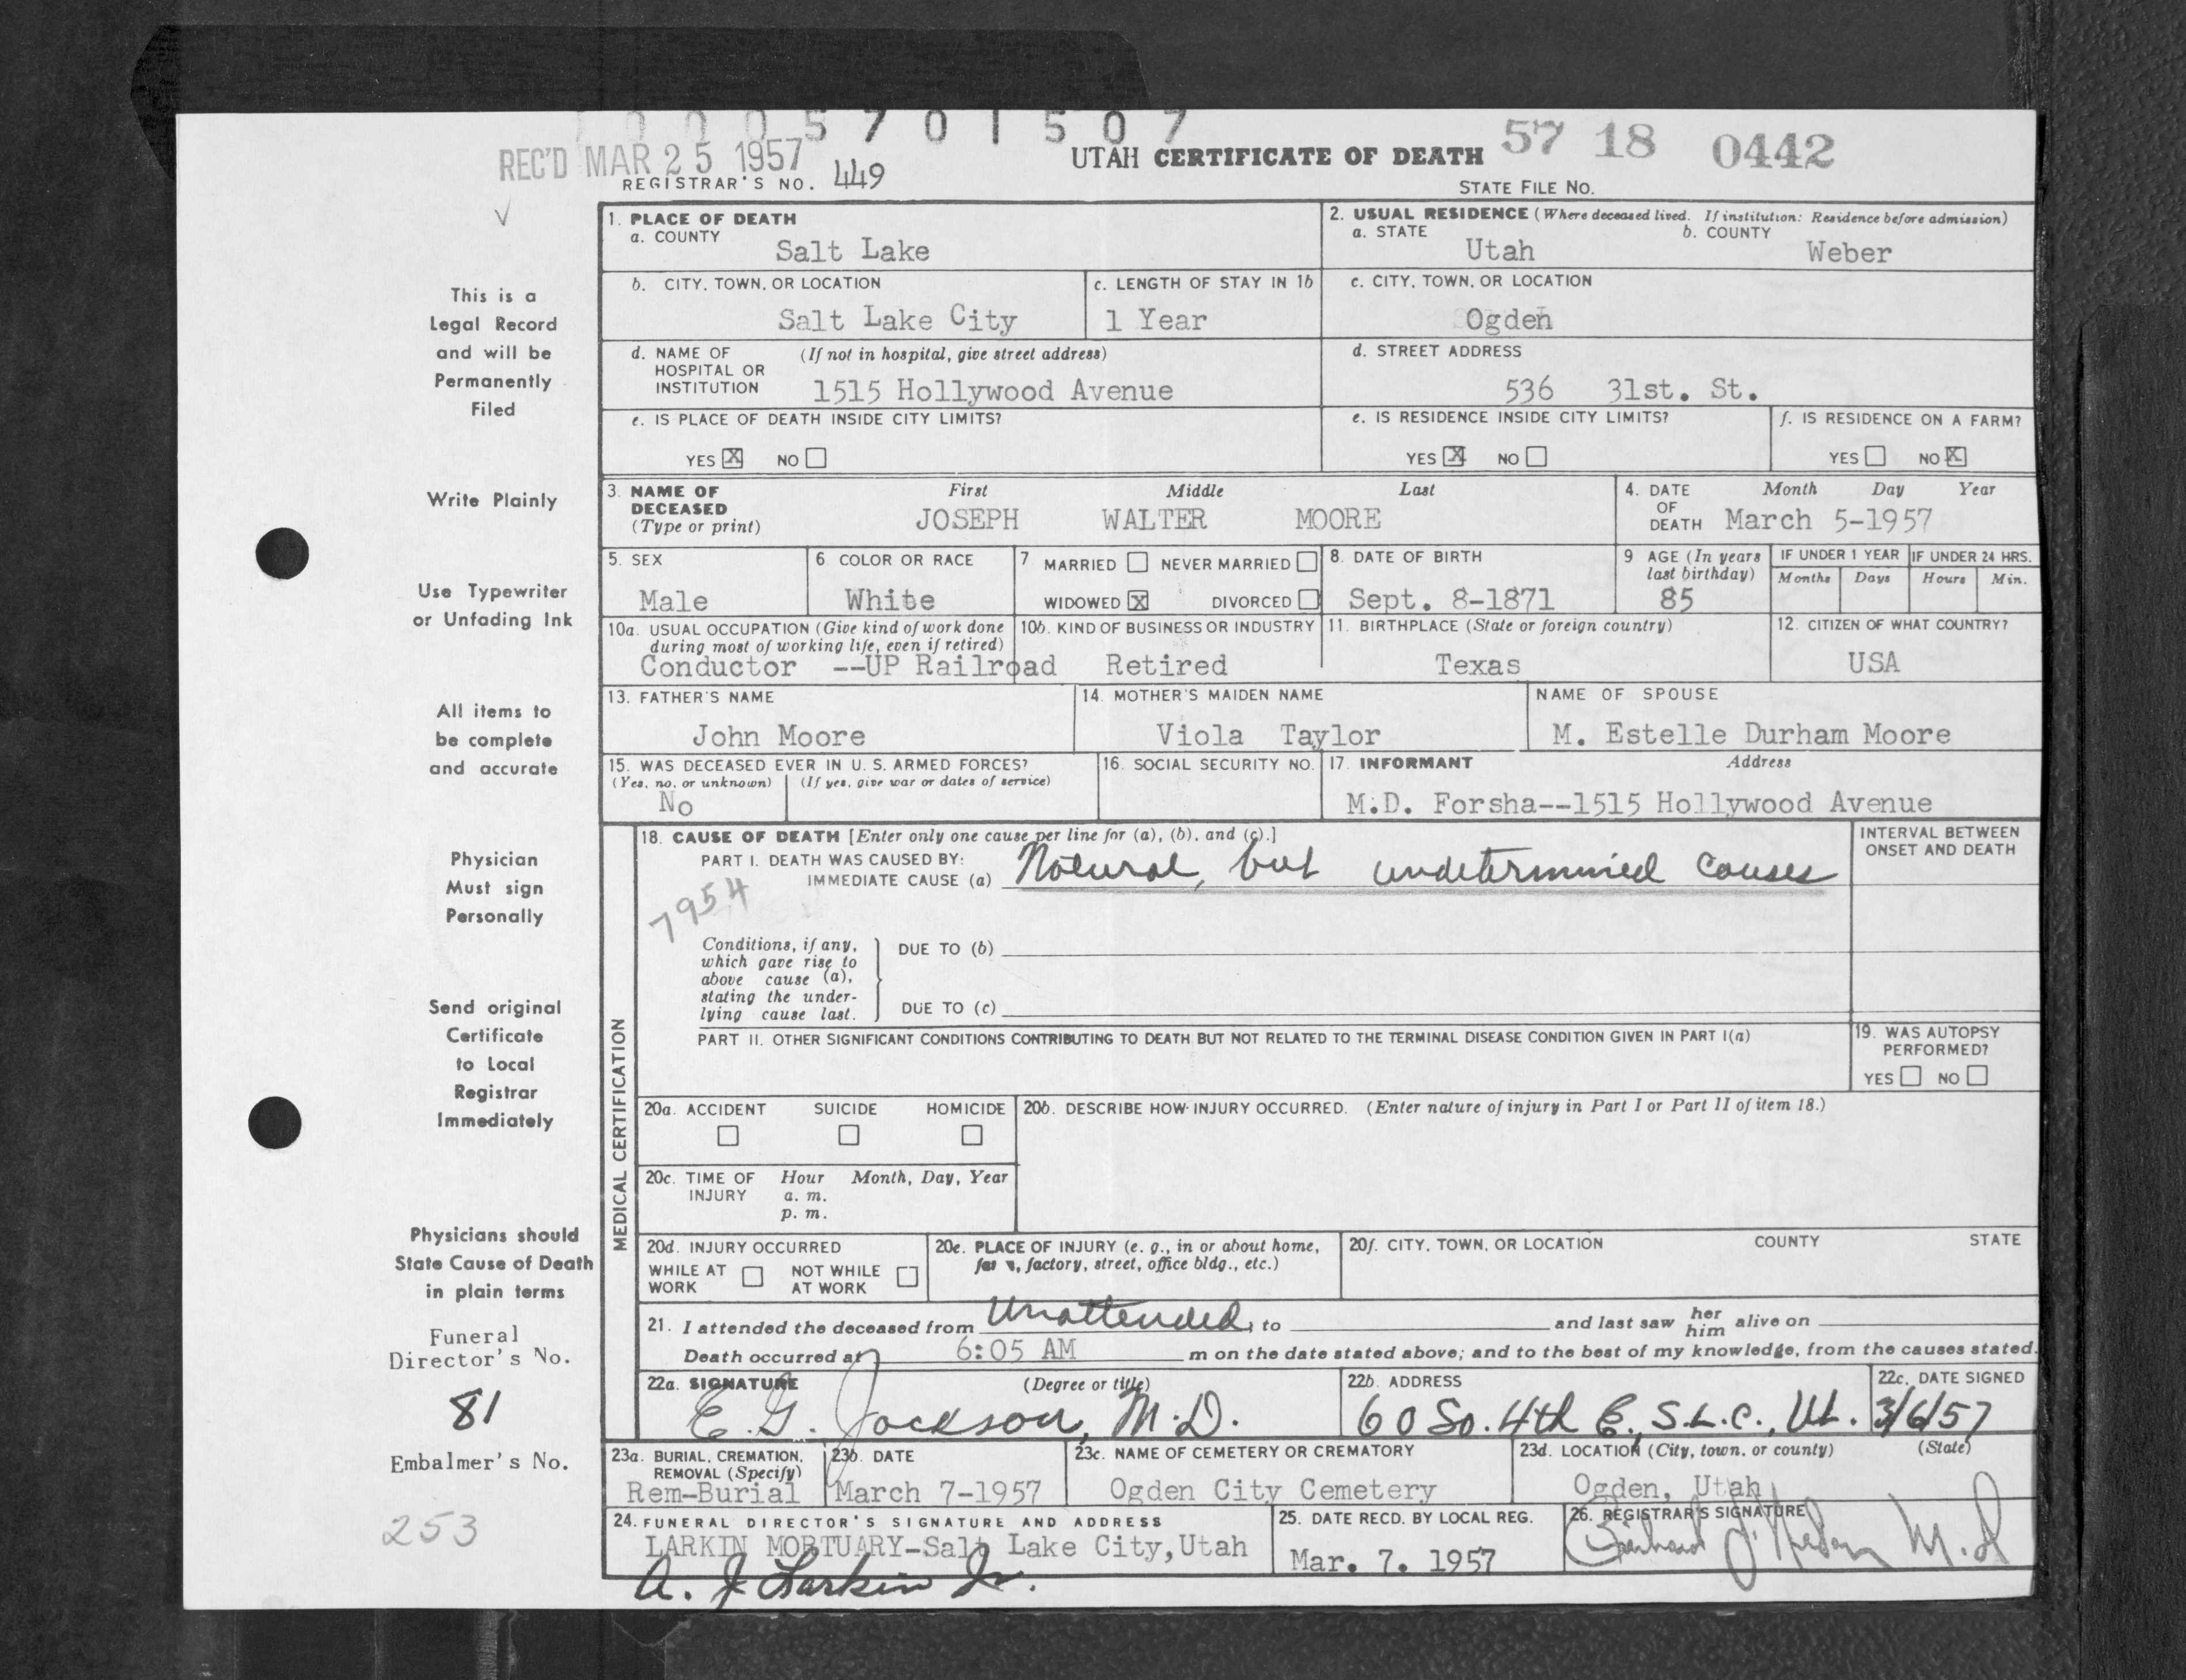 0005701507
REC'D MAR 25 1957
UTAH CERTIFICATE OF DEATH 57 18 0442
REGISTRAR'S NO. 449
STATE FILE No.
This is a
Legal Record
and will be
Permanently
Filed
Write Plainly
Use Typewriter
or Unfading Ink
All items to
be complete
and accurate
Physician
Must sign
Personally
Send original
Certificate
to Local
Registrar
Immediately
Physicians should
State Cause of Death
in plain terms
Funeral
Director's No.
81
Embalmer's No.
253
1. PLACE OF DEATH
a. COUNTY
Salt Lake
2. USUAL RESIDENCE (Where deceased lived. If institution: Residence before admission)
a. STATE b. COUNTY
Utah Weber
b. CITY, TOWN, OR LOCATION
Salt Lake City
c. LENGTH OF STAY IN 1b
1 Year
c. CITY, TOWN, OR LOCATION
Ogden
d. NAME OF (If not in hospital, give street address)
HOSPITAL OR
INSTITUTION 1515 Hollywood Avenue
d. STREET ADDRESS
536 31st. St.
e. IS PLACE OF DEATH INSIDE CITY LIMITS?
YES X NO
e. IS RESIDENCE INSIDE CITY LIMITS?
YES X NO
f. IS RESIDENCE ON A FARM?
YES NO X
3. NAME OF DECEASED First Middle Last
(Type or print) JOSEPH WALTER MOORE
4. DATE OF DEATH Month Day Year
March 5-1957
5. SEX
Male
6 COLOR OR RACE
White
7 MARRIED NEVER MARRIED
WIDOWED X DIVORCED
8. DATE OF BIRTH
Sept. 8-1871
9 AGE (In years
last birthday)
85
IF UNDER 1 YEAR
Months Days
IF UNDER 24 HRS.
Hours Min.
10a. USUAL OCCUPATION (Give kind of work done
during most of working life, even if retired)
Conductor --UP Railroad
10b. KIND OF BUSINESS OR INDUSTRY
Retired
11. BIRTHPLACE (State or foreign country)
Texas
12. CITIZEN OF WHAT COUNTRY?
USA
13. FATHER'S NAME
John Moore
14. MOTHER'S MAIDEN NAME
Viola Taylor
NAME OF SPOUSE
M. Estelle Durham Moore
15. WAS DECEASED EVER IN U. S. ARMED FORCES?
(Yes, no, or unknown) (If yes, give war or dates of service)
No
16. SOCIAL SECURITY NO.
17. INFORMANT Address
M.D. Forsha--1515 Hollywood Avenue
MEDICAL CERTIFICATION
18. CAUSE OF DEATH [Enter only one cause per line for (a), (b), and (c).]
PART I. DEATH WAS CAUSED BY:
IMMEDIATE CAUSE (a) Natural, but undetermined causes
INTERVAL BETWEEN
ONSET AND DEATH
7954
Conditions, if any,
which gave rise to
above cause (a),
stating the under-
lying cause last.
DUE TO (b)
DUE TO (c)
PART II. OTHER SIGNIFICANT CONDITIONS CONTRIBUTING TO DEATH BUT NOT RELATED TO THE TERMINAL DISEASE CONDITION GIVEN IN PART I(a)
19. WAS AUTOPSY
PERFORMED?
YES NO
20a. ACCIDENT SUICIDE HOMICIDE
20b. DESCRIBE HOW INJURY OCCURRED. (Enter nature of injury in Part I or Part II of item 18.)
20c. TIME OF Hour Month, Day, Year
INJURY a. m.
p. m.
20d. INJURY OCCURRED
WHILE AT NOT WHILE
WORK AT WORK
20e. PLACE OF INJURY (e. g., in or about home,
factory, street, office bldg., etc.)
20f. CITY, TOWN, OR LOCATION COUNTY STATE
21. I attended the deceased from Unattended, to and last saw her him alive on
Death occurred at 6:05 AM m on the date stated above; and to the best of my knowledge, from the causes stated.
22a. SIGNATURE (Degree or title)
E. G. Jackson, M.D.
22b. ADDRESS
60 So. 4th E., S.L.C., Ut.
22c. DATE SIGNED
3/6/57
23a. BURIAL, CREMATION,
REMOVAL (Specify)
Rem-Burial
23b. DATE
March 7-1957
23c. NAME OF CEMETERY OR CREMATORY
Ogden City Cemetery
23d. LOCATION (City, town, or county) (State)
Ogden, Utah
24. FUNERAL DIRECTOR'S SIGNATURE AND ADDRESS
LARKIN MORTUARY-Salt Lake City, Utah
A. J Larkin Jr.
25. DATE RECD. BY LOCAL REG.
Mar. 7. 1957
26. REGISTRAR'S SIGNATURE
M.D